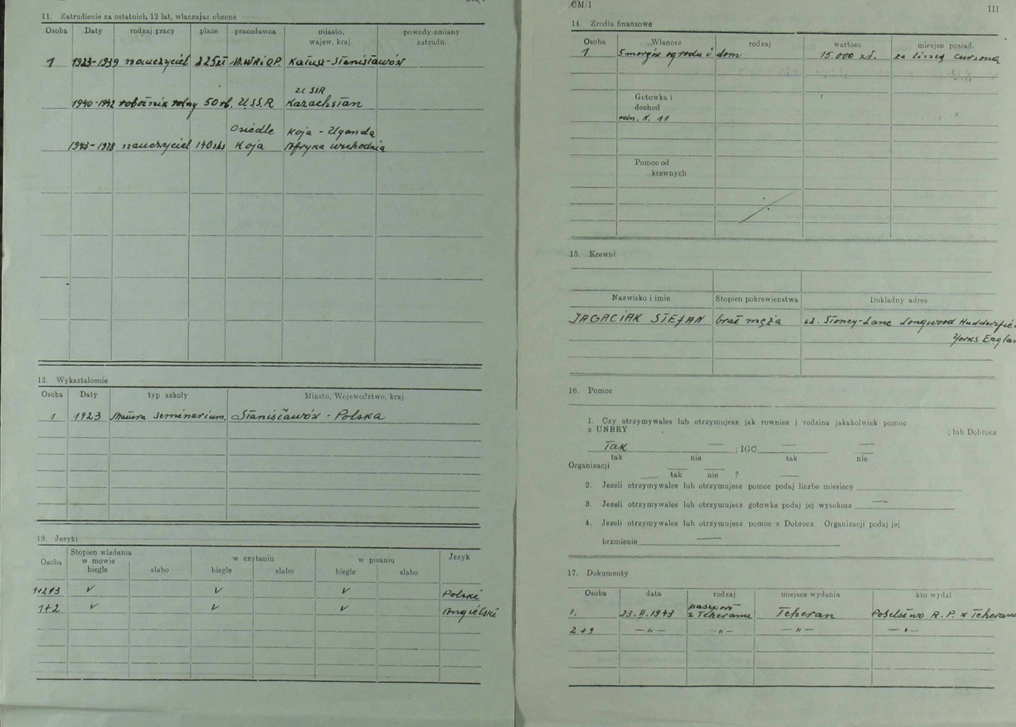 11. Zatrudienie za ostatnich 12 lat, wlaczajac obecne
Osoba Daty rodzaj pracy place pracodawca miasto, wojew. kraj. powody zmiany zatrudn.
1 1923-1939 nauczyciel 225 zł M.W.R.i O.P. Kałusz-Stanisławów
1940-1942 robotnik rolny 50 rb. U.S.S.R U SSR Kazachstan
nauczyciel 140 shs Osiedle Koja Koja - Uganda Afryka wschodnia
12. Wyksztalcenie
Osoba Daty typ szkoly Miasto, Wojewodztwo, kraj.
1 1923 Matura Seminarium, Stanisławów - Polska
13. Jezyki
Osoba Stopien wladania w mowie w czytaniu w pisaniu Jezyk
biegle slabo biegle slabo biegle slabo
1+2+3 v v v Polski
1+2 v v v Angielski
CM/1
III
14. Zrodla finansowe
Osoba Wlanosc rodzaj wartosc miejsce posiad.
1 5 morgów ogrodu i dom 15.000 zł. za linią curzona
Gotowka i
dochod
Pomoc od
krewnych
15. Krewni
Nazwisko i imie Stopien pokrewienstwa Dokladny adres
JAGACIAK STEFAN brat męża Stoney-Lane Longwood
Yorks
16. Pomoc
1. Czy otrzymywales lub otrzymujesz jak rowniez i rodzina jakakolwiek pomoc
z UNRRY ; lub Dobrocz
Tak ; IGC
tak nie tak nie
Organizacji
tak nie ?
2. Jezeli otrzymywales lub otrzymujesz pomoc podaj liczbe miesiecy
3. Jezeli otrzymywales lub otrzymujesz gotowke podaj jej wysokosc
4. Jezeli otrzymywales lub otrzymujesz pomoc z Dobrocz Organizacji podaj jej
brzmienie
17. Dokumenty
Osoba data rodzaj miejsce wydania kto wydal
1. 23.II.1943 paszport z Teheranu Teheran Poselstwo R.P. w Teheranie
2+3 —„— —„— —„— —„—